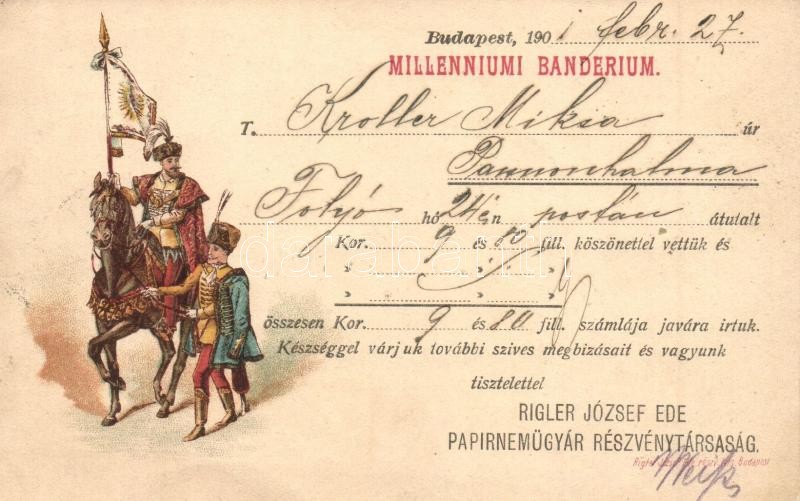 Budapest, 1901 febr. 27.
MILLENNIUMI BANDERIUM.
T. Kroller Miksa úr
Pannonhalma
Folyó hó 24én postán átutalt
Kor. 9 és 80 fill. köszönettel vettük és
» » »
» » »
összesen Kor. 9 és 80 fill. számlája javára irtuk.
Készséggel várjuk további szives megbizásait és vagyunk
tisztelettel
RIGLER JÓZSEF EDE
PAPIRNEMÜGYÁR RÉSZVÉNYTÁRSASÁG.
Budapest
darabanth